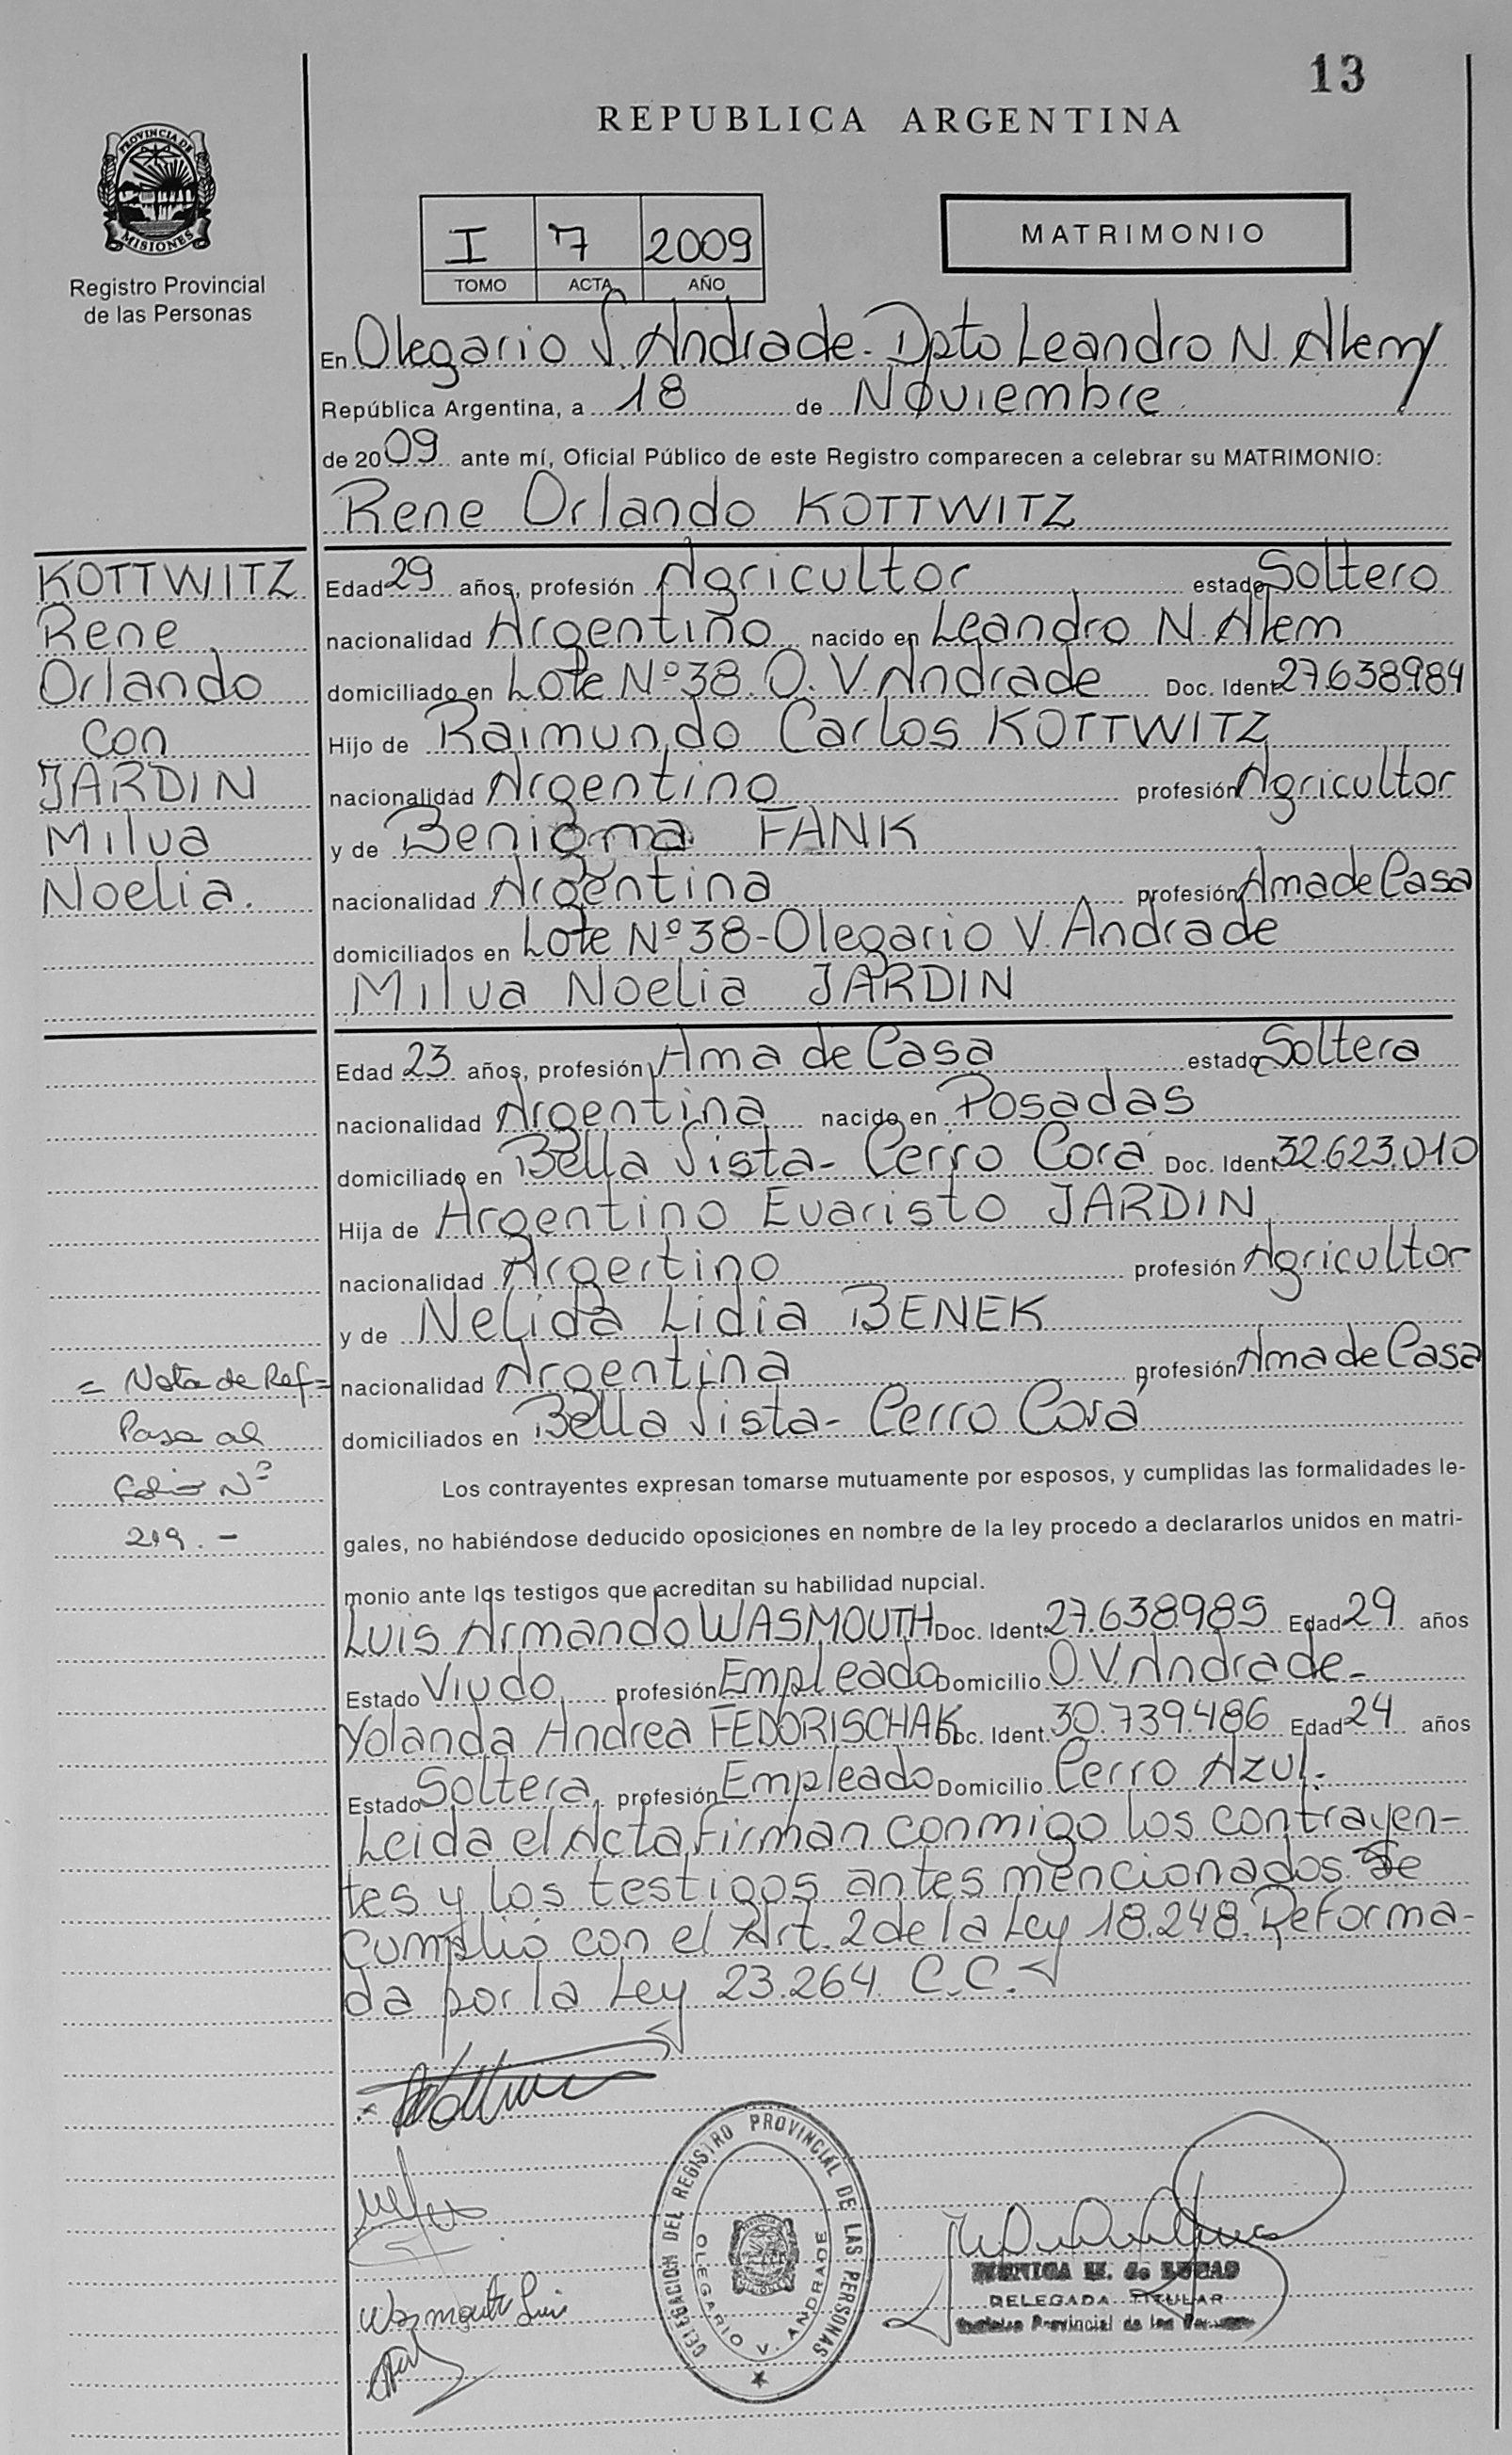 13
REPUBLICA ARGENTINA
PROVINCIA DE
MISIONES
Registro Provincial
de las Personas
I 7 2009
TOMO ACTA AÑO
MATRIMONIO
En Olegario V. Andrade. Dpto Leandro N. Alem
República Argentina, a 18 de Noviembre
de 2009 ante mí, Oficial Público de este Registro comparecen a celebrar su MATRIMONIO:
Rene Orlando KOTTWITZ
KOTTWITZ
Rene
Orlando
con
JARDIN
Milva
Noelia.
Edad 29 años, profesión Agricultor estado Soltero
nacionalidad Argentino nacido en Leandro N. Alem
domiciliado en Lote Nº 38. O. V. Andrade Doc. Ident 27.638.984
Hijo de Raimundo Carlos KOTTWITZ
nacionalidad Argentino profesión Agricultor
y de Benigma FANK
nacionalidad Argentina profesión Ama de Casa
domiciliados en Lote Nº 38-Olegario V. Andrade
Milva Noelia JARDIN
Edad 23 años, profesión Ama de Casa estado Soltera
nacionalidad Argentina nacido en Posadas
domiciliado en Bella Vista- Cerro Corá Doc. Ident 32.623.010
Hija de Argentino Evaristo JARDIN
nacionalidad Argertino profesión Agricultor
y de Nelida Lidia BENEK
nacionalidad Argentina profesión Ama de Casa
domiciliados en Bella Vista- Cerro Corá
= Nota de Ref=
Pasa al
Folio Nº
219.-
Los contrayentes expresan tomarse mutuamente por esposos, y cumplidas las formalidades le-
gales, no habiéndose deducido oposiciones en nombre de la ley procedo a declararlos unidos en matri-
monio ante los testigos que acreditan su habilidad nupcial.
Luis Armando WASMOUTH Doc. Ident 27.638.985 Edad 29 años
Estado Viudo profesión Empleado Domicilio O.V. Andrade-
Yolanda Andrea FEDORISCHAK Doc. Ident. 30.739.486 Edad 24 años
Estado Soltera profesión Empleado Domicilio Cerro Azul.-
Leida el Acta, firman conmigo los contrayen-
tes y los testigos antes mencionados. Se
Cumplio con el Art. 2 de la Ley 18.248. Reforma-
da por la Ley 23.264. C.C.
Wasmouth Luis
DELEGACION DEL REGISTRO PROVINCIAL DE LAS PERSONAS
OLEGARIO V. ANDRADE
MONICA M. de LUCAS
DELEGADA TITULAR
Provincial de las